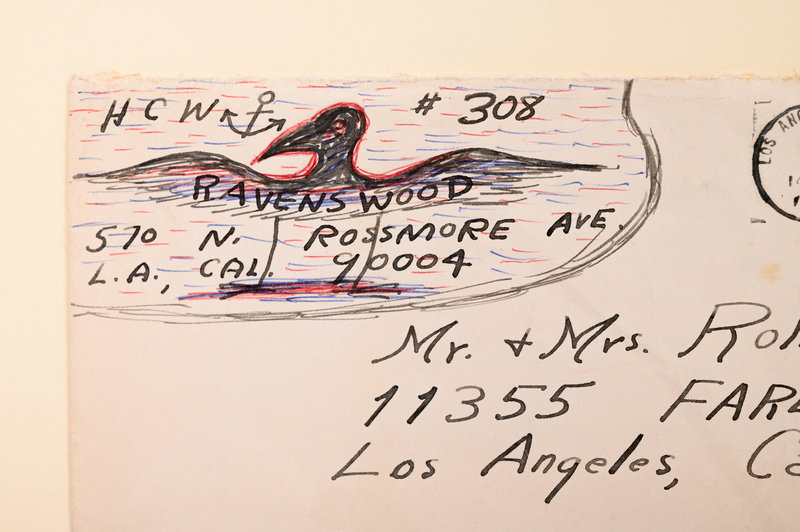 HCW # 308
RAVENSWOOD
570 N. ROSSMORE AVE.
L.A., CAL. 90004
LOS AN
Mr. + Mrs.
11355
Los Angeles,